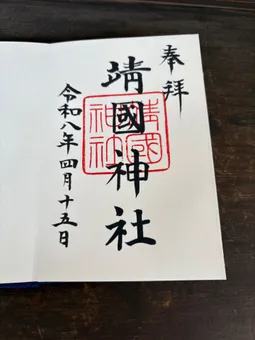 奉拝
靖國神社
靖國神社
令和八年四月十五日